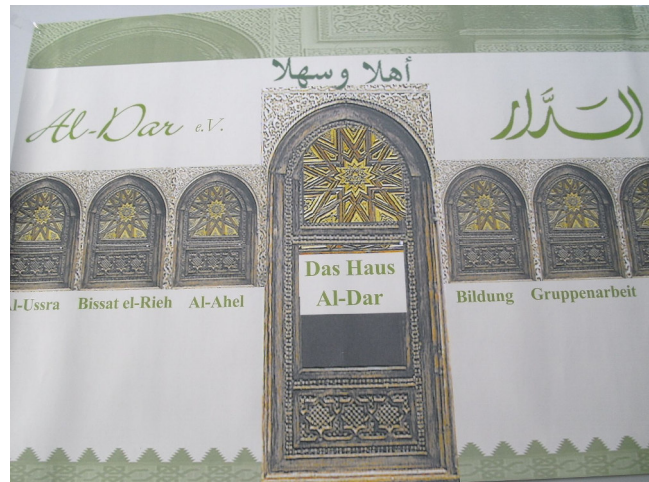 أهلا وسهلا
Al-Dar e.V.
الدَّار
Das Haus
Al-Dar
l-Ussra Bissat el-Rieh Al-Ahel
Bildung Gruppenarbeit